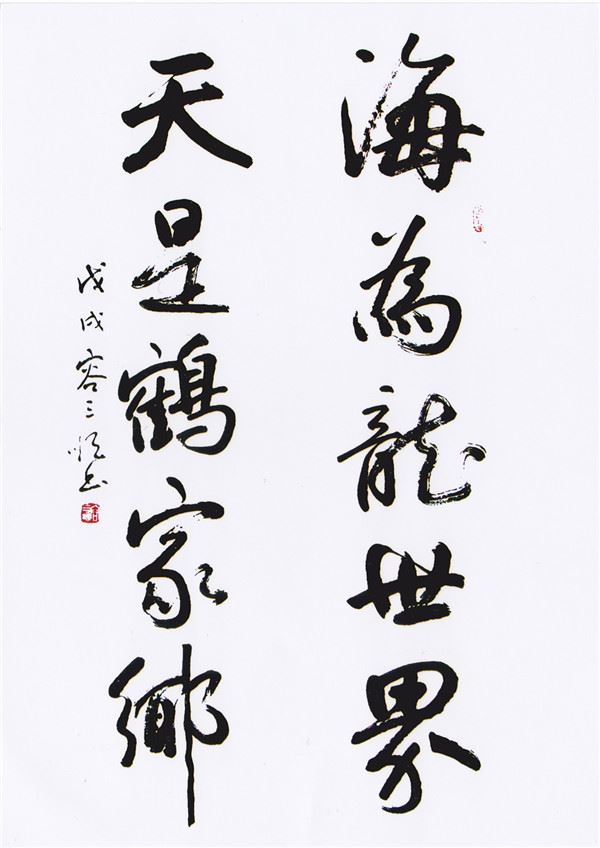 海為龍世界
天是鶴家鄉
戊戌容三惺书